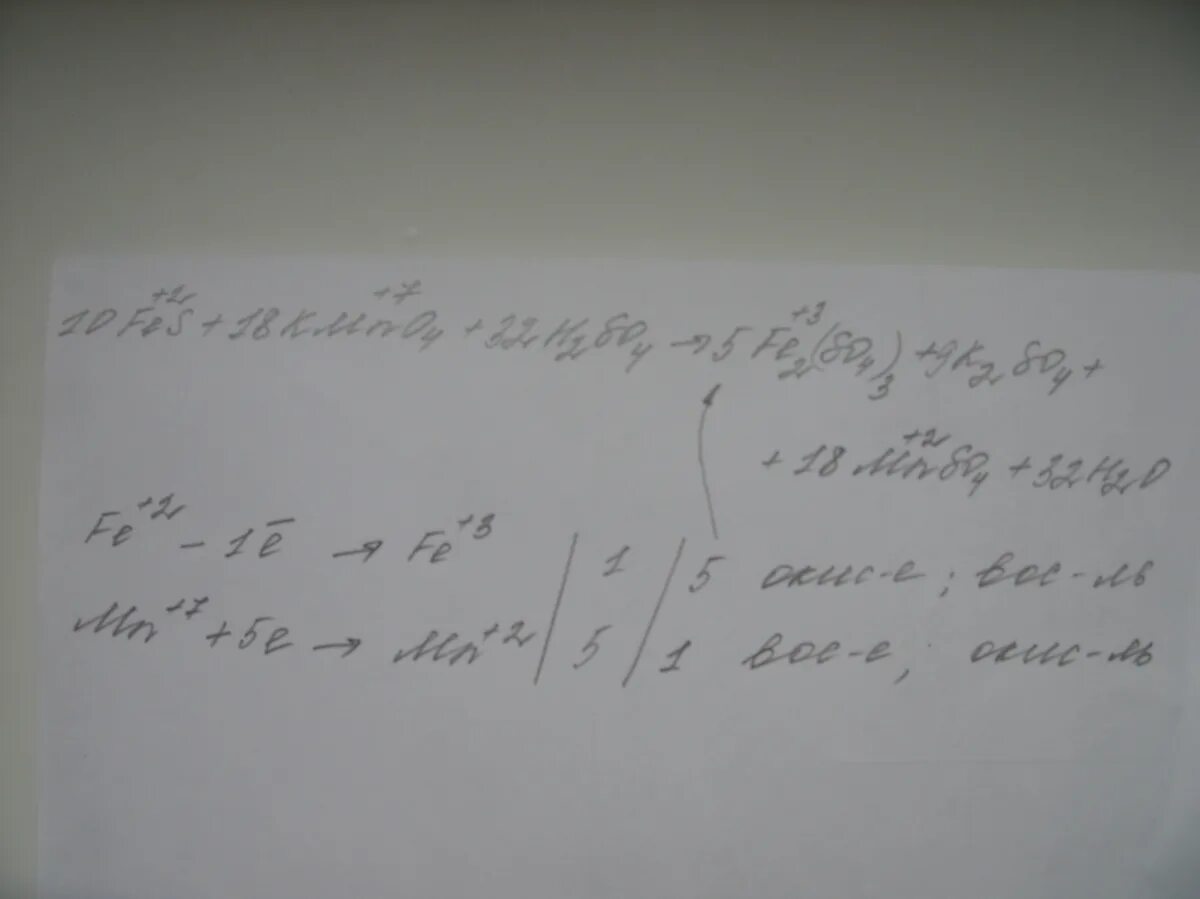 10Fe⁺²S + 18KMn⁺⁷O₄ + 32H₂SO₄ → 5Fe₂⁺³(SO₄)₃ + 9K₂SO₄ +
+ 18Mn⁺²SO₄ + 32H₂O
Fe⁺² - 1ē → Fe⁺³ | 1 | 5 окис-е; вос-ль
Mn⁺⁷ + 5e → Mn⁺² | 5 | 1 вос-е; окис-ль